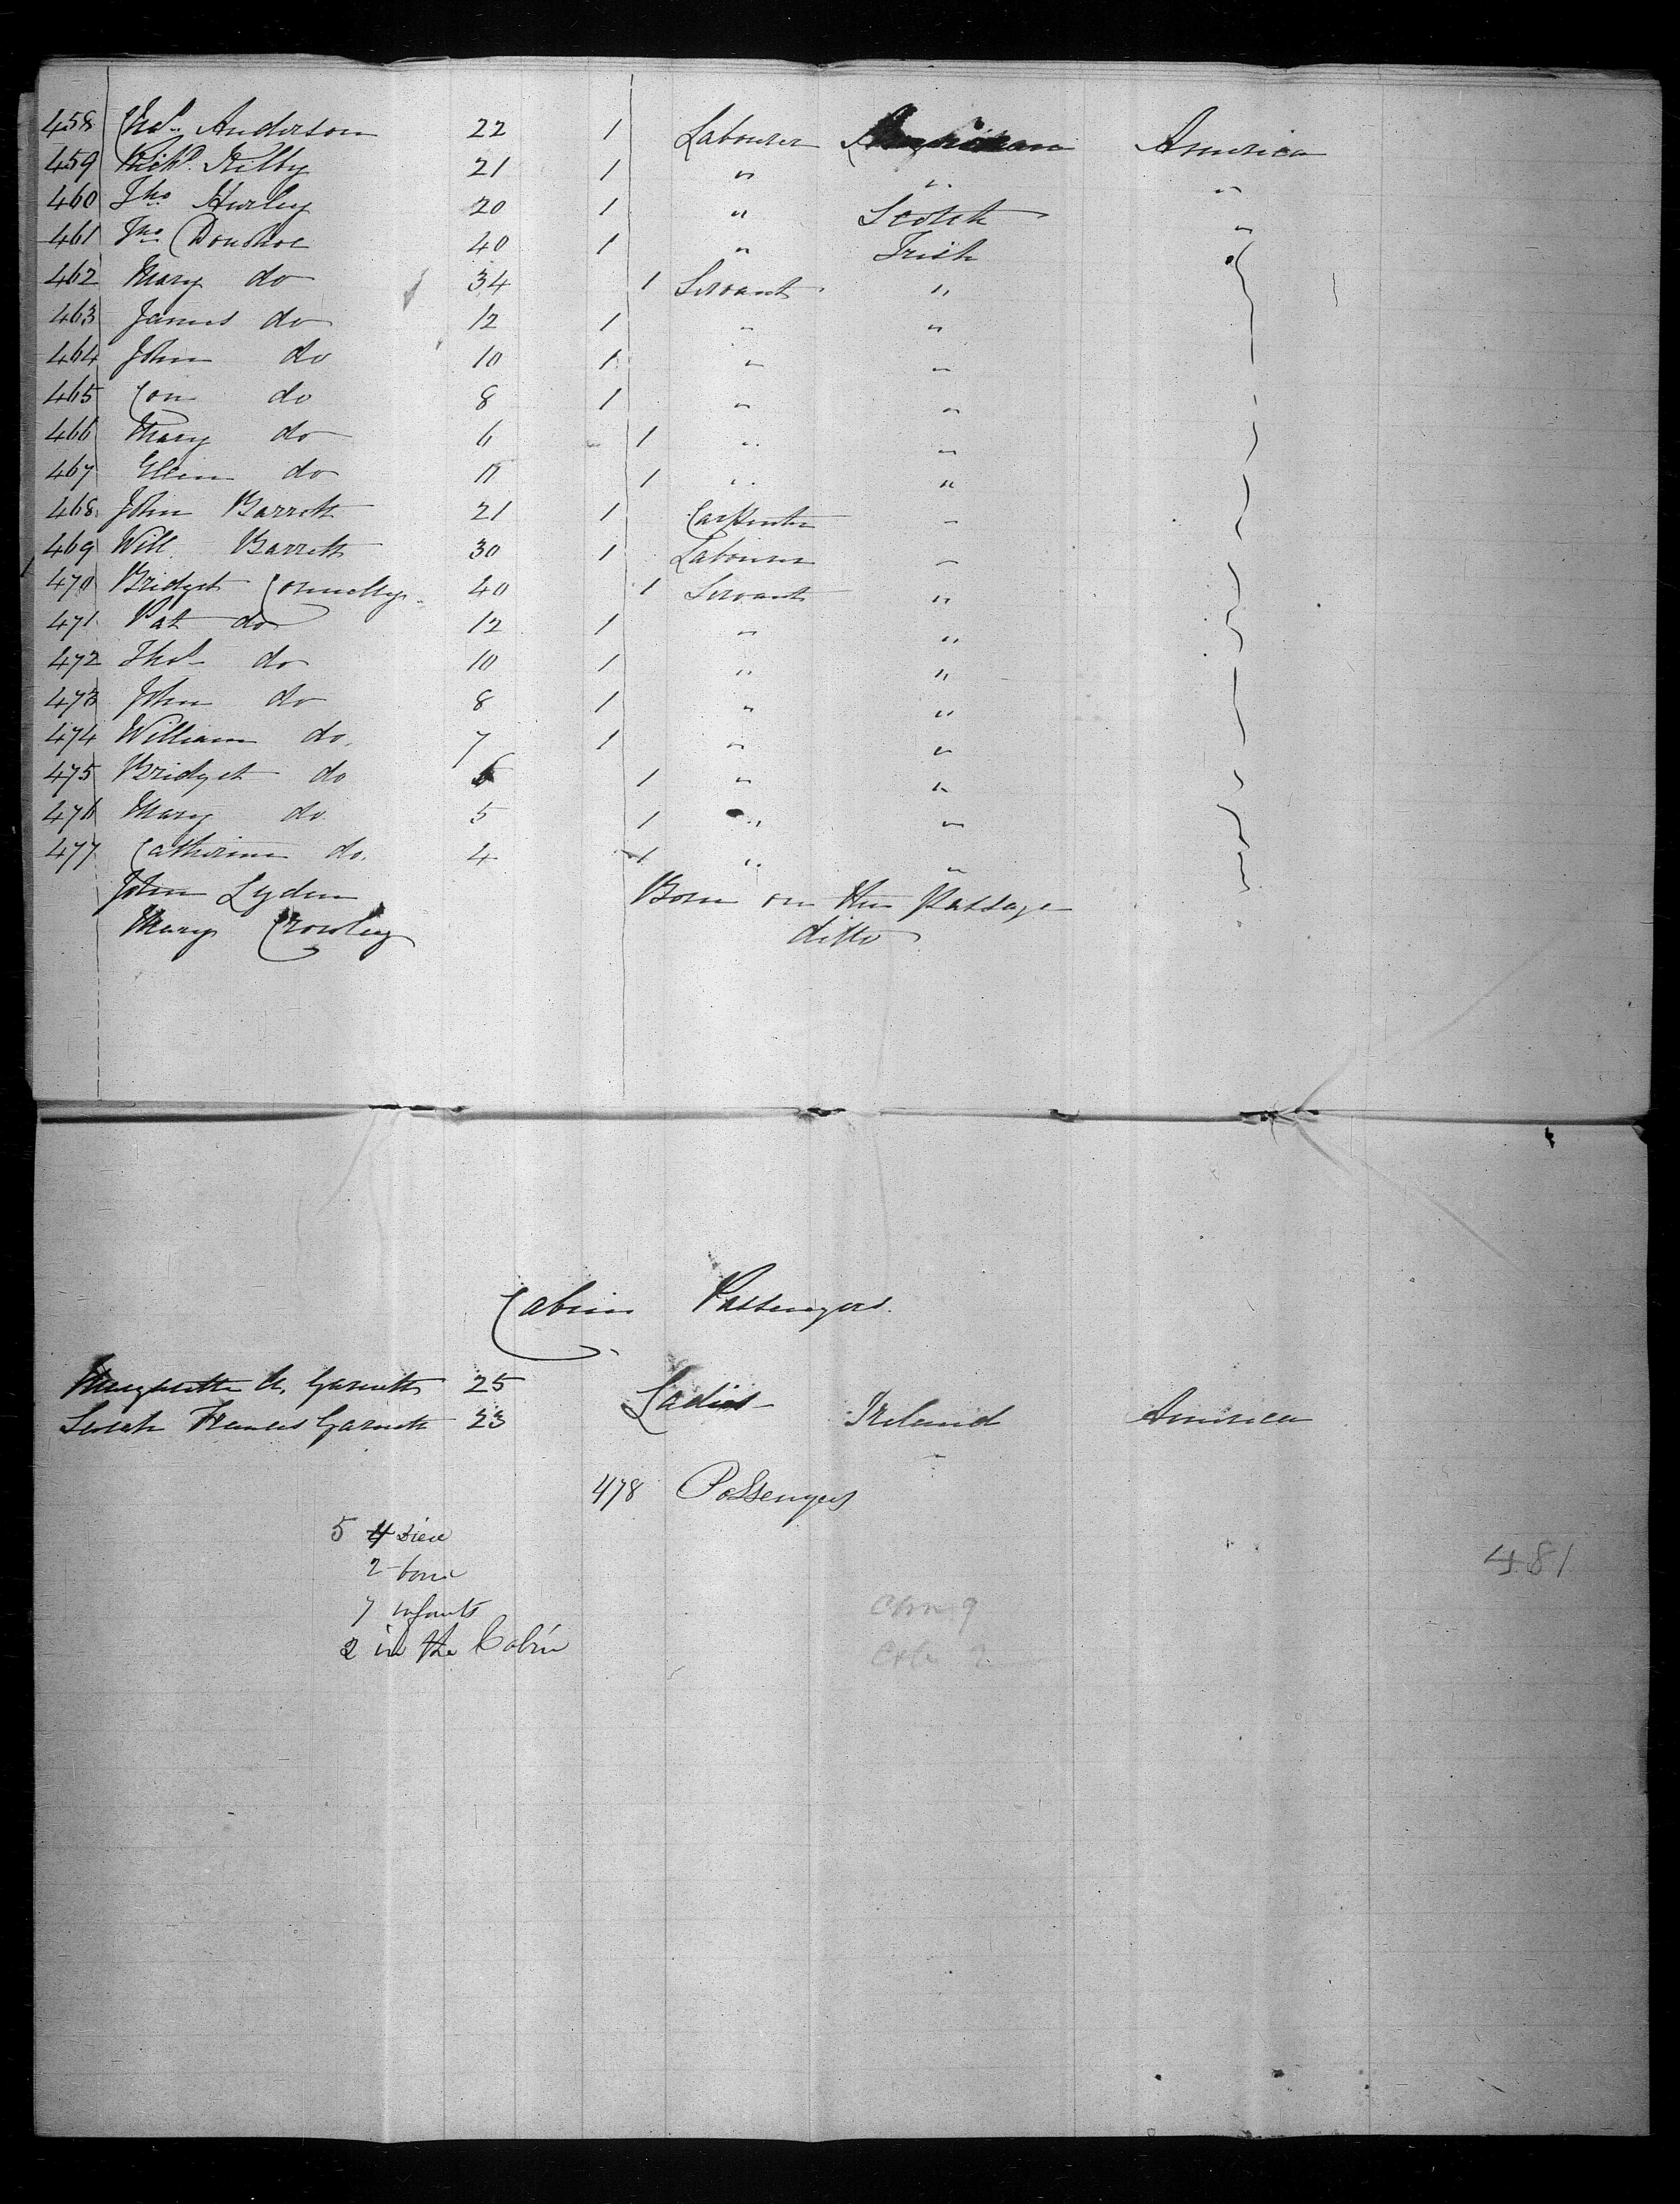 458 Chas. Anderson 22 1 Labourer America
459 Richd. Kilby 21 1 " " "
460 Thos Hurley 20 1 " Scotch "
461 Jno Donohoe 40 1 " Irish
462 Mary do 34 1 Servant "
463 James do 12 1 " "
464 John do 10 1 " "
465 Con do 8 1 " "
466 Mary do 6 1 " "
467 Ellen do 1 " "
468 John Barrett 21 1 Carpenter "
469 Will. Barrett 30 1 Labourer "
470 Bridget Connelly 40 1 Servant "
471 Pat do 12 1 " "
472 Thos do 10 1 " "
473 John do 8 1 " "
474 William do. 7 1 " "
475 Bridget do 1 " "
476 Mary do. 5 1 " "
477 Catherine do. 4 1 " "
John Lyden Born on the Passage
Mary Crowley ditto
Cabin Passengers.
Garnett 25
Sarah Frances Garnett 23 Ladies Ireland America
478 Passengers
5 4 died
2 born
7 infants
2 in the Cabin
481